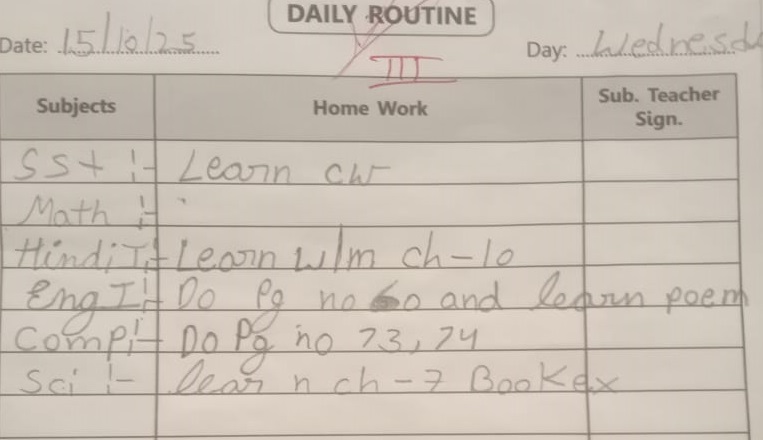 DAILY ROUTINE
Date: 15/10/25 Day: Wednesd
III
Subjects Home Work Sub. Teacher Sign.
SSt :- Learn cw
Math :-
Hindi I :- Learn w/m ch-10
Eng I :- Do Pg no 60 and learn poem
Comp :- Do Pg no 73, 74
Sci :- learn ch-7 Book ex